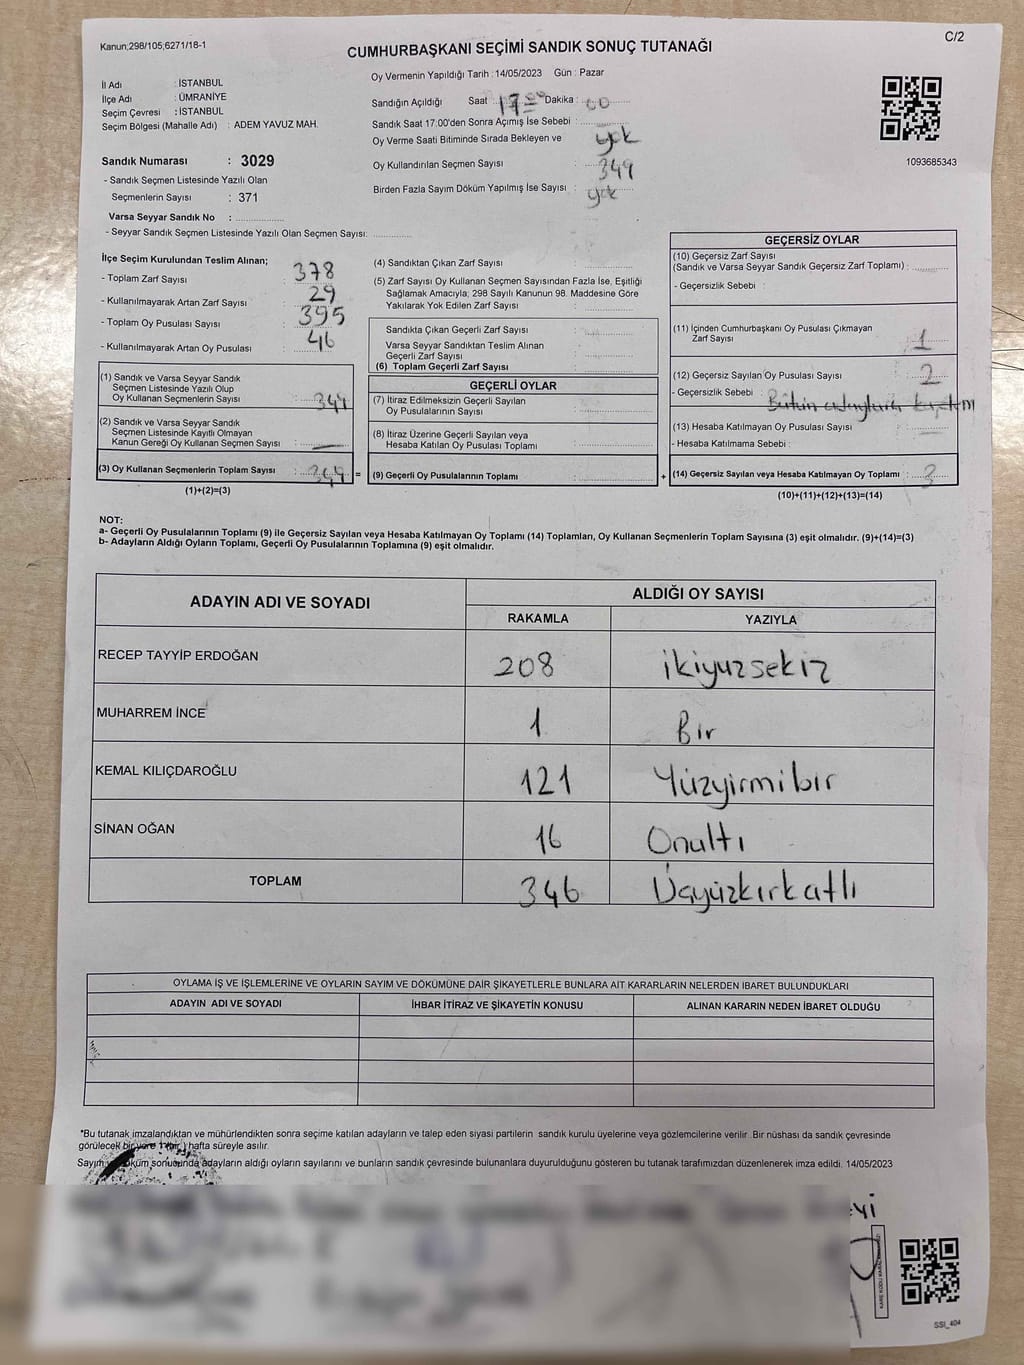 Kanun;298/105;6271/18-1
C/2
CUMHURBAŞKANI SEÇİMİ SANDIK SONUÇ TUTANAĞI
İl Adı : İSTANBUL
İlçe Adı : ÜMRANİYE
Seçim Çevresi : İSTANBUL
Seçim Bölgesi (Mahalle Adı) : ADEM YAVUZ MAH.
Sandık Numarası : 3029
- Sandık Seçmen Listesinde Yazılı Olan
Seçmenlerin Sayısı : 371
Varsa Seyyar Sandık No :
- Seyyar Sandık Seçmen Listesinde Yazılı Olan Seçmen Sayısı:
Oy Vermenin Yapıldığı Tarih : 14/05/2023 Gün : Pazar
Sandığın Açıldığı Saat : 17 00 Dakika : 00
Sandık Saat 17:00'den Sonra Açımış İse Sebebi :
Oy Verme Saati Bitiminde Sırada Bekleyen ve : yok
Oy Kullandırılan Seçmen Sayısı : 349
Birden Fazla Sayım Döküm Yapılmış İse Sayısı : yok
1093685343
İlçe Seçim Kurulundan Teslim Alınan;
- Toplam Zarf Sayısı : 378
- Kullanılmayarak Artan Zarf Sayısı : 29
- Toplam Oy Pusulası Sayısı : 395
- Kullanılmayarak Artan Oy Pusulası : 46
(1) Sandık ve Varsa Seyyar Sandık
Seçmen Listesinde Yazılı Olup
Oy Kullanan Seçmenlerin Sayısı : 349
(2) Sandık ve Varsa Seyyar Sandık
Seçmen Listesinde Kayıtlı Olmayan
Kanun Gereği Oy Kullanan Seçmen Sayısı : —
(3) Oy Kullanan Seçmenlerin Toplam Sayısı : 349 =
(1)+(2)=(3)
(4) Sandıktan Çıkan Zarf Sayısı :
(5) Zarf Sayısı Oy Kullanan Seçmen Sayısından Fazla İse, Eşitliği
Sağlamak Amacıyla; 298 Sayılı Kanunun 98. Maddesine Göre
Yakılarak Yok Edilen Zarf Sayısı :
Sandıkta Çıkan Geçerli Zarf Sayısı :
Varsa Seyyar Sandıktan Teslim Alınan
Geçerli Zarf Sayısı :
(6) Toplam Geçerli Zarf Sayısı :
GEÇERLİ OYLAR
(7) İtiraz Edilmeksizin Geçerli Sayılan
Oy Pusulalarının Sayısı :
(8) İtiraz Üzerine Geçerli Sayılan veya
Hesaba Katılan Oy Pusulası Toplamı :
(9) Geçerli Oy Pusulalarının Toplamı : +
GEÇERSİZ OYLAR
(10) Geçersiz Zarf Sayısı
(Sandık ve Varsa Seyyar Sandık Geçersiz Zarf Toplamı) :
- Geçersizlik Sebebi :
(11) İçinden Cumhurbaşkanı Oy Pusulası Çıkmayan
Zarf Sayısı : 1
(12) Geçersiz Sayılan Oy Pusulası Sayısı : 2
- Geçersizlik Sebebi : Bütün adayların
(13) Hesaba Katılmayan Oy Pusulası Sayısı :
- Hesaba Katılmama Sebebi :
(14) Geçersiz Sayılan veya Hesaba Katılmayan Oy Toplamı : 3
(10)+(11)+(12)+(13)=(14)
NOT:
a- Geçerli Oy Pusulalarının Toplamı (9) ile Geçersiz Sayılan veya Hesaba Katılmayan Oy Toplamı (14) Toplamları, Oy Kullanan Seçmenlerin Toplam Sayısına (3) eşit olmalıdır. (9)+(14)=(3)
b- Adayların Aldığı Oyların Toplamı, Geçerli Oy Pusulalarının Toplamına (9) eşit olmalıdır.
ADAYIN ADI VE SOYADI
ALDIĞI OY SAYISI
RAKAMLA YAZIYLA
RECEP TAYYİP ERDOĞAN 208 ikiyüzsekiz
MUHARREM İNCE 1 Bir
KEMAL KILIÇDAROĞLU 121 Yüzyirmibir
SİNAN OĞAN 16 Onaltı
TOPLAM 346 Üçyüzkırkatlı
OYLAMA İŞ VE İŞLEMLERİNE VE OYLARIN SAYIM VE DÖKÜMÜNE DAİR ŞİKAYETLERLE BUNLARA AİT KARARLARIN NELERDEN İBARET BULUNDUKLARI
ADAYIN ADI VE SOYADI İHBAR İTİRAZ VE ŞİKAYETİN KONUSU ALINAN KARARIN NEDEN İBARET OLDUĞU
*Bu tutanak imzalandıktan ve mühürlendikten sonra seçime katılan adayların ve talep eden siyasi partilerin sandık kurulu üyelerine veya gözlemcilerine verilir. Bir nüshası da sandık çevresinde
görülecek bir yere 1 (bir) hafta süreyle asılır.
Sayım ve döküm sonucunda adayların aldığı oyların sayılarını ve bunların sandık çevresinde bulunanlara duyurulduğunu gösteren bu tutanak tarafımızdan düzenlenerek imza edildi. 14/05/2023
SSI_404